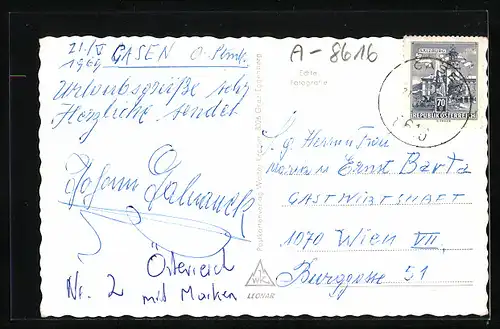 21./V GASEN
1969
Urlaubsgrüße
Herzliche sendet
Johann
Österreich
Nr. 2 mit Marken
A-8616
Echte
Fotografie
LEONAR
SALZBURG
70
REPUBLIK ÖSTERREICH
S. g. Herrn u. Frau
Ernst Barta
GASTWIRTSCHAFT
1070 Wien VII.
Burggasse 51